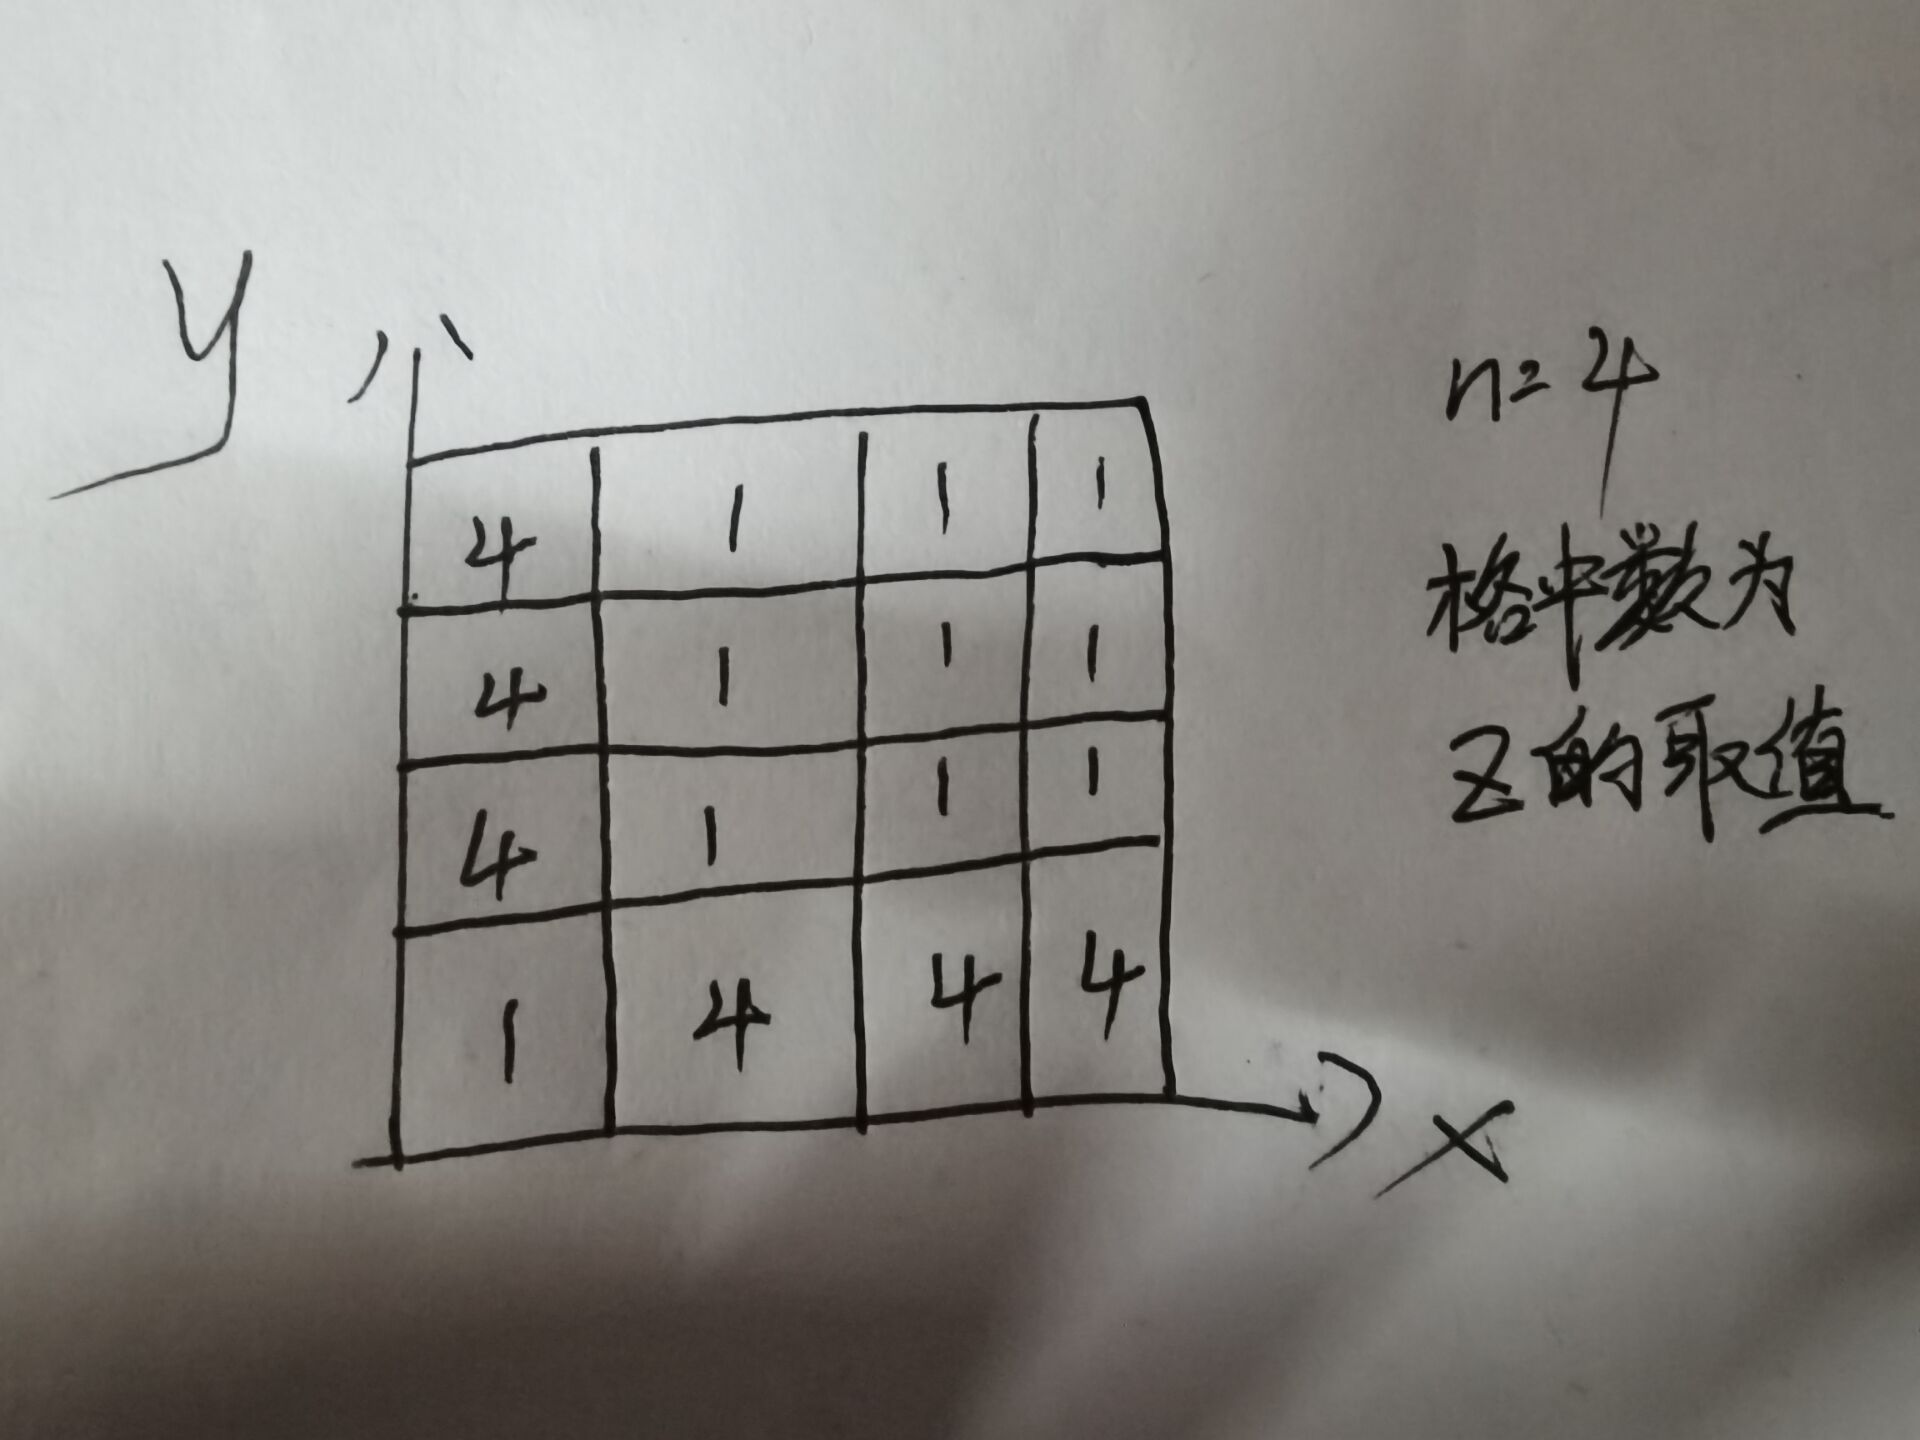 y
n=4
4 1 1 1
格中数为
4 1 1 1
Z的取值
4 1 1 1
1 4 4 4
x